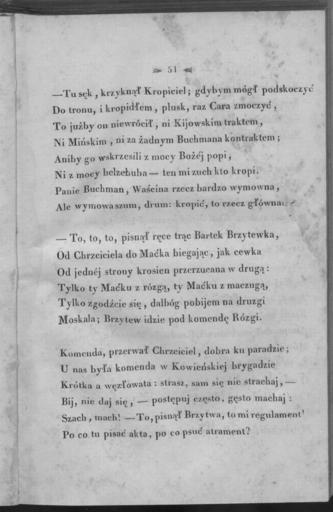 51
—Tu sęk, krzyknął Kropiciel; gdybym mógł podskoczyć
Do tronu, i kropidłem, plusk, raz Cara zmoczyć,
To jużby on niewrócił, ni Kijowskim traktem,
Ni Mińskim, ni za żadnym Buchmana kontraktem;
Aniby go wskrzesili z mocy Bożéj popi,
Ni z mocy belzebuba — ten mi zuch kto kropi.
Panie Buchman, Waścina rzecz bardzo wymowna,
Ale wymowa szum, drum: kropić, to rzecz główna.
— To, to, to, pisnął ręce trąc Bartek Brzytewka,
Od Chrzciciela do Maćka biegając, jak cewka
Od jednéj strony krosien przerzucana w drugą:
Tylko ty Maćku z rózgą, ty Maćku z maczugą,
Tylko zgodźcie się, dalbóg pobijem na druzgi
Moskala; Brzytew idzie pod komendę Rózgi.
Komenda, przerwał Chrzciciel, dobra ku paradzie;
U nas była komenda w Kowieńskiej brygadzie
Krótka a węzłowata: strasz, sam się nie strachaj, —
Bij, nie daj się, — postępuj często, gęsto machaj:
Szach, mach! — To, pisnął Brzytwa, to mi regulament!
Po co tu pisać akta, po co psuć atrament?